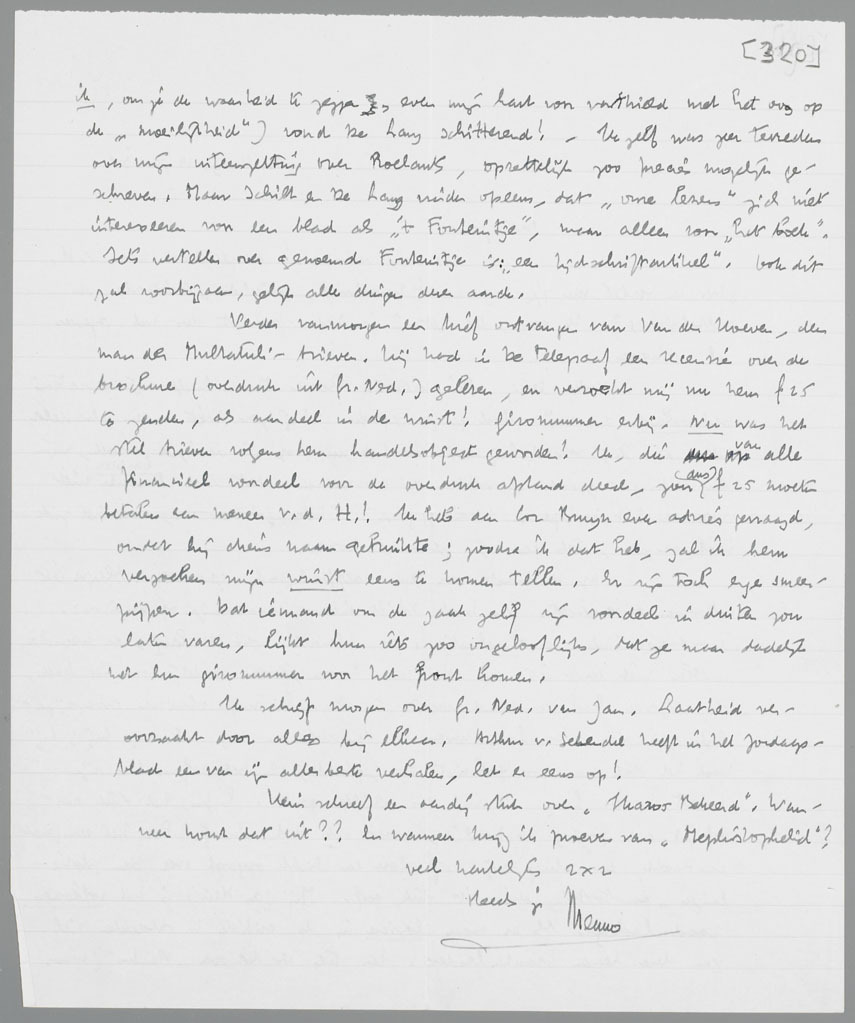 [320]
ik, om je de waarheid te zeggen, even mijn hart voor vasthield met het oog op
de „moeilijkheid”) vond De Lang schitterend! – Ik zelf was zeer tevreden
over mijn uiteenzetting over Roelants, opzettelijk zoo precies mogelijk ge-
schreven. Maar Schilt en De Lang vinden opeens, dat „onze lezers” zich niet
interesseeren voor een blad als „'t Fonteintje”, maar alleen voor „het boek”.
Iets vertellen over genoemd Fonteintje is: „een tijdschriftartikel”. Ook dit
zal voorbijgaan, gelijk alle dingen dezer aarde.
Verder vanmorgen een brief ontvangen van Van der Hoeven, den
man der Multatuli-brieven. Hij had in De Telegraaf een recensie over de
brochure (overdruk uit Gr. Ned.) gelezen, en verzocht mij nu hem f 25
te zenden, als aandeel in de winst! Gironummer erbij. Nu was het
stel brieven volgens hem handelsobject geworden! Ik, die van alle
financieel voordeel voor de overdruk afstand deed, zou (dus) f 25 moeten
betalen aan meneer v.d. H.! Ik heb aan Cor Bruyn even advies gevraagd,
omdat hij diens naam gebruikte; zoodra ik dat heb, zal ik hem
verzoeken mijn winst eens te komen tellen. Er zijn toch erge smeer-
pijpen. Dat iemand om de zaak zelf zijn voordeel in duiten zou
laten varen, lijkt hun iets zoo ongelooflijks, dat ze maar dadelijk
met hun gironummer voor het front komen.
Ik schrijf morgen over Gr. Ned. van Jan. Laatheid ver-
oorzaakt door alles bij elkaar. Arthur v. Schendel heeft in het Zondags-
blad een van zijn allerbeste verhalen, let er eens op!
Hein schreef een aardig stuk over „Thanos Beheerd”. Wan-
neer komt dat uit?? En wanneer krijg ik proeven van „Mephistophelisch”?
veel hartelijks 2x2
steeds je Menno